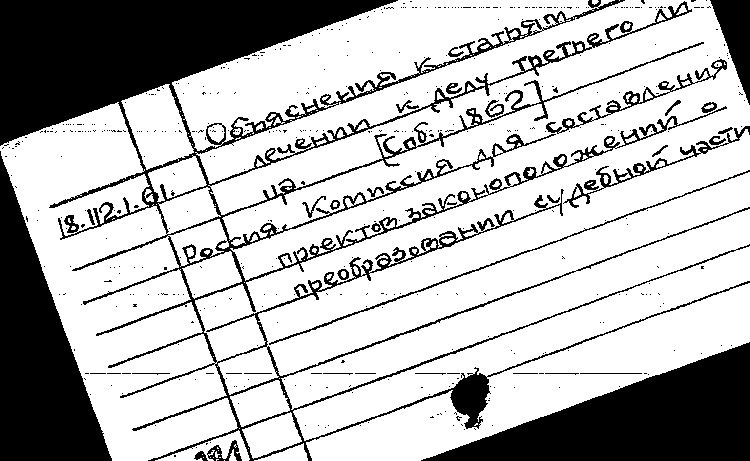 Объяснения к статьям о
лечении к делу третьего ли-
ца. [Спб., 1862].
18.112.1.61.
Россия. Комиссия для составления
проектов законоположений о
преобразовании судебной части